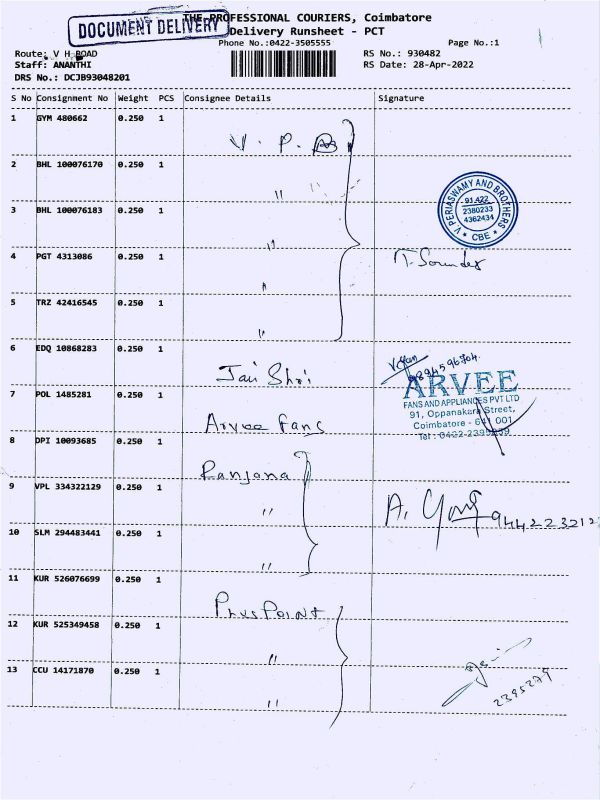 THE PROFESSIONAL COURIERS, Coimbatore
DOCUMENT DELIVERY
Delivery Runsheet - PCT
Phone No.:0422-3505555
Page No.:1
Route: V H ROAD
RS No.: 930482
Staff: ANANTHI
RS Date: 28-Apr-2022
DRS No.: DCJB93048201
S No Consignment No Weight PCS Consignee Details Signature
1 GYM 480662 0.250 1
V. P.
2 BHL 100076170 0.250 1
"
3 BHL 100076183 0.250 1
"
V PERIASWAMY AND BROTHERS
91,422
2380233
4362434
* CBE *
4 PGT 4313086 0.250 1
"
5 TRZ 42416545 0.250 1
"
6 EDQ 10868283 0.250 1
Jai Shri
9894596704
ARVEE
FANS AND APPLIANCES PVT LTD
91, Oppanakara Street,
Coimbatore - 641 001
Tel : 0422-2395
7 POL 1485281 0.250 1
Arvee Fans
8 DPI 10093685 0.250 1
Ranjana
9 VPL 334322129 0.250 1
"
A.
944223212
10 SLM 294483441 0.250 1
"
11 KUR 526076699 0.250 1
Plus Point
12 KUR 525349458 0.250 1
"
13 CCU 14171870 0.250 1
"
2395279